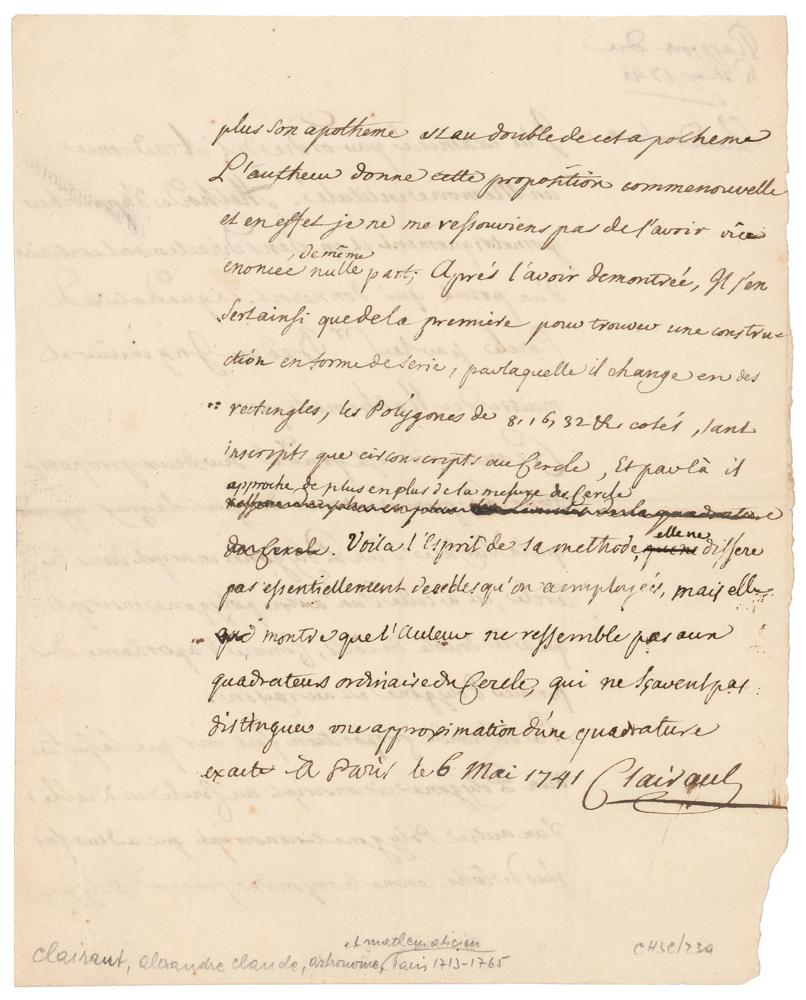 plus son apotheme est au double de cet apotheme
L'autheur donne cette proposition comme nouvelle
et en effet je ne me ressouviens pas de l'avoir vüe
de même
enoncée nulle part; Aprés l'avoir demontrée, Il s'en
sert ainsi que de la premiére pour trouver une constru-
ction en forme de serie, par laquelle il change en des
rectangles, les Polygones de 8, 16, 32 &c cotés, tant
inscripts que circonscripts au Cercle, Et par là il
approche de plus en plus de la mesure du Cercle
la quadrature
du Cercle. Voila l'Esprit de sa methode, elle ne differe
pas essentiellement de celles qu'on a employées, mais elle
montre que l'Auteur ne ressemble pas aux
quadrateurs ordinaire du Cercle, qui ne sçavent pas
distinguer une approximation d'une quadrature
exacte A Paris le 6 Mai 1741 Clairaut
et mathematicien
Clairaut, alexandre claude, astronome, Paris 1713-1765